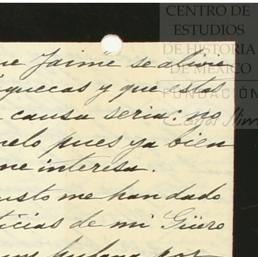 CENTRO DE
ESTUDIOS
DE HISTORIA
DE MÉXICO
FUNDACIÓN
ue Jaime se alivie
quecas y que estas
causa seria: no
elo pues ya bien
me interesa.
usto me han dado
ticias de mi Güero
por